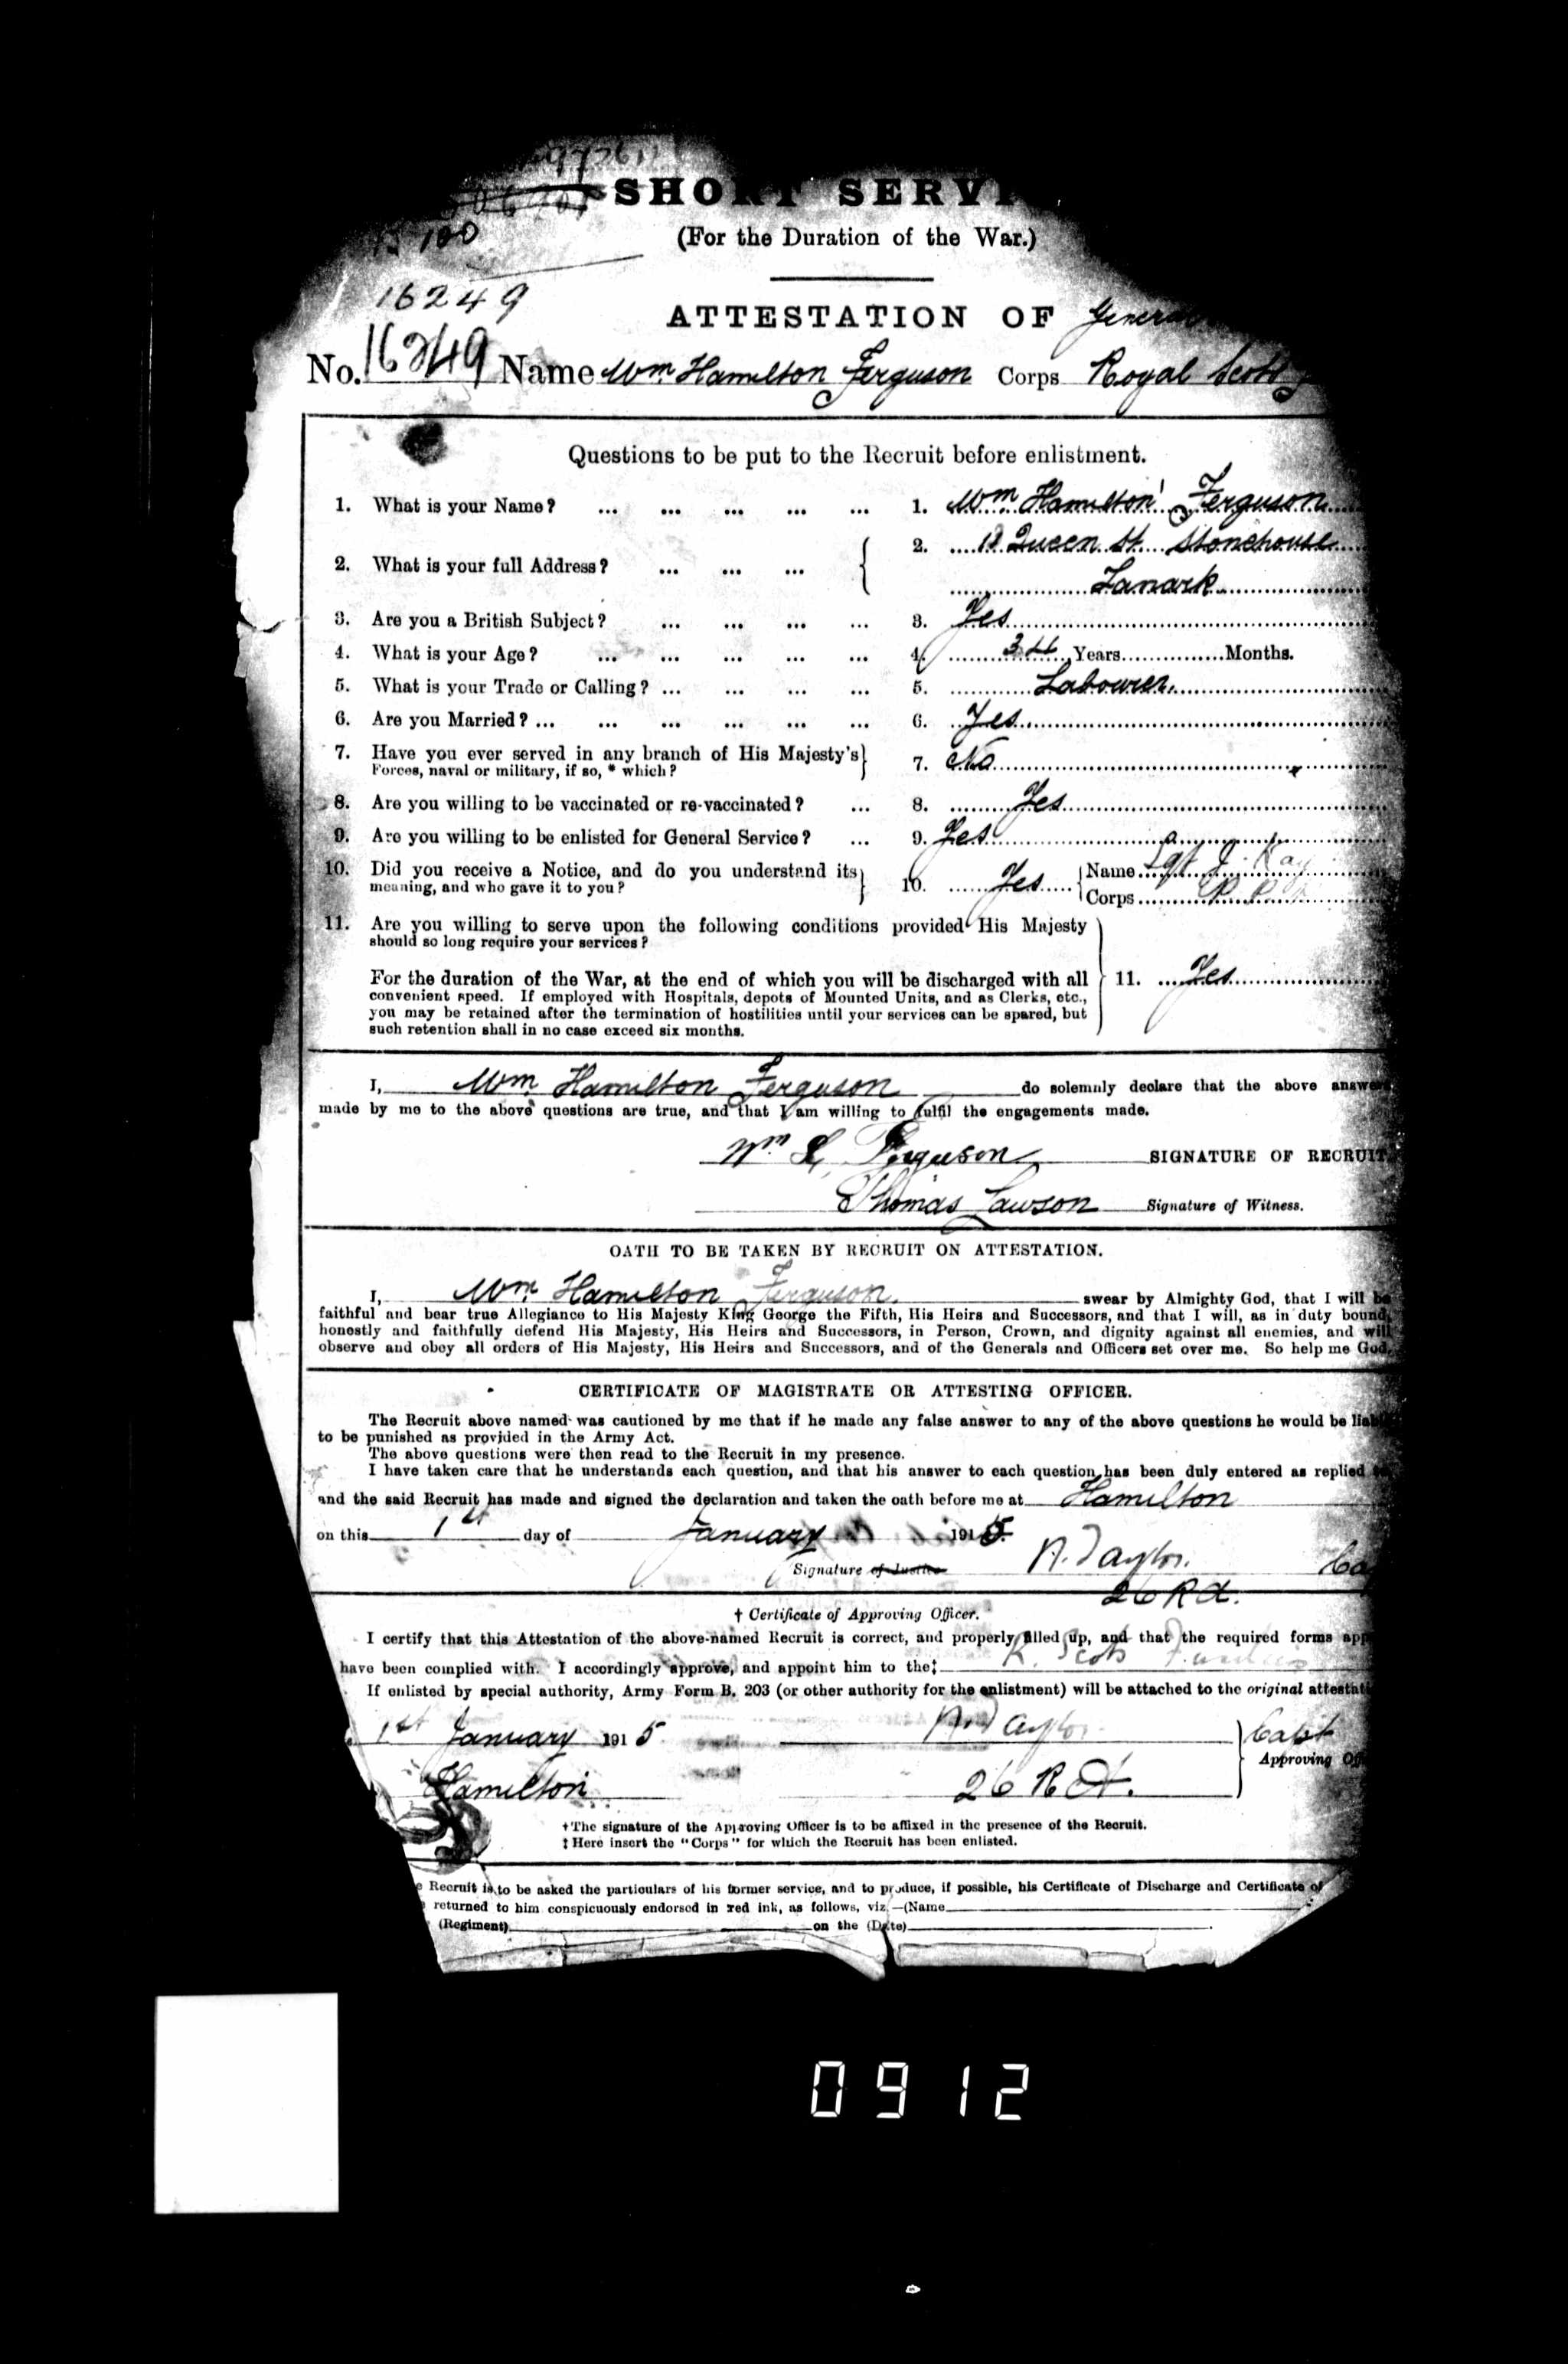 SHORT SERVI
(For the Duration of the War.)
100
16249
ATTESTATION OF General
No. 16249 Name Wm Hamilton Ferguson Corps Royal Scots
Questions to be put to the Recruit before enlistment.
1. What is your Name? ... ... ... ... ... 1. Wm Hamilton Ferguson
2. What is your full Address? ... ... ... 2. Queen St. Stonehouse
Lanark
3. Are you a British Subject? ... ... ... ... 3. Yes
4. What is your Age? ... ... ... ... ... 4. 34 Years Months.
5. What is your Trade or Calling? ... ... ... ... 5. Labourer
6. Are you Married? ... ... ... ... ... 6. Yes
7. Have you ever served in any branch of His Majesty's
Forces, naval or military, if so, * which? 7. No
8. Are you willing to be vaccinated or re-vaccinated? ... 8. Yes
9. Are you willing to be enlisted for General Service? ... 9. Yes
10. Did you receive a Notice, and do you understand its
meaning, and who gave it to you? 10. Yes Name Sgt J. Kay
Corps
11. Are you willing to serve upon the following conditions provided His Majesty
should so long require your services?
For the duration of the War, at the end of which you will be discharged with all 11. Yes
convenient speed. If employed with Hospitals, depots of Mounted Units, and as Clerks, etc.,
you may be retained after the termination of hostilities until your services can be spared, but
such retention shall in no case exceed six months.
I, Wm Hamilton Ferguson do solemnly declare that the above answers
made by me to the above questions are true, and that I am willing to fulfil the engagements made.
Wm H. Ferguson SIGNATURE OF RECRUIT.
Thomas Lawson Signature of Witness.
OATH TO BE TAKEN BY RECRUIT ON ATTESTATION.
I, Wm Hamilton Ferguson. swear by Almighty God, that I will be
faithful and bear true Allegiance to His Majesty King George the Fifth, His Heirs and Successors, and that I will, as in duty bound,
honestly and faithfully defend His Majesty, His Heirs and Successors, in Person, Crown, and dignity against all enemies, and will
observe and obey all orders of His Majesty, His Heirs and Successors, and of the Generals and Officers set over me. So help me God.
CERTIFICATE OF MAGISTRATE OR ATTESTING OFFICER.
The Recruit above named was cautioned by me that if he made any false answer to any of the above questions he would be liab
to be punished as provided in the Army Act.
The above questions were then read to the Recruit in my presence.
I have taken care that he understands each question, and that his answer to each question has been duly entered as replied
and the said Recruit has made and signed the declaration and taken the oath before me at Hamilton
on this 1st day of January 1915
Signature of Justice A. Taylor. Ca
26 R.A.
† Certificate of Approving Officer.
I certify that this Attestation of the above-named Recruit is correct, and properly filled up, and that the required forms app
have been complied with. I accordingly approve, and appoint him to the‡ R. Scots Fusiliers
If enlisted by special authority, Army Form B. 203 (or other authority for the enlistment) will be attached to the original attestati
1st January 1915 A. Taylor Capt
Approving Off
Hamilton 26 R.A.
†The signature of the Approving Officer is to be affixed in the presence of the Recruit.
‡Here insert the "Corps" for which the Recruit has been enlisted.
Recruit is to be asked the particulars of his former service, and to produce, if possible, his Certificate of Discharge and Certificate of
returned to him conspicuously endorsed in red ink, as follows, viz.—(Name
(Regiment) on the (Date)
0912